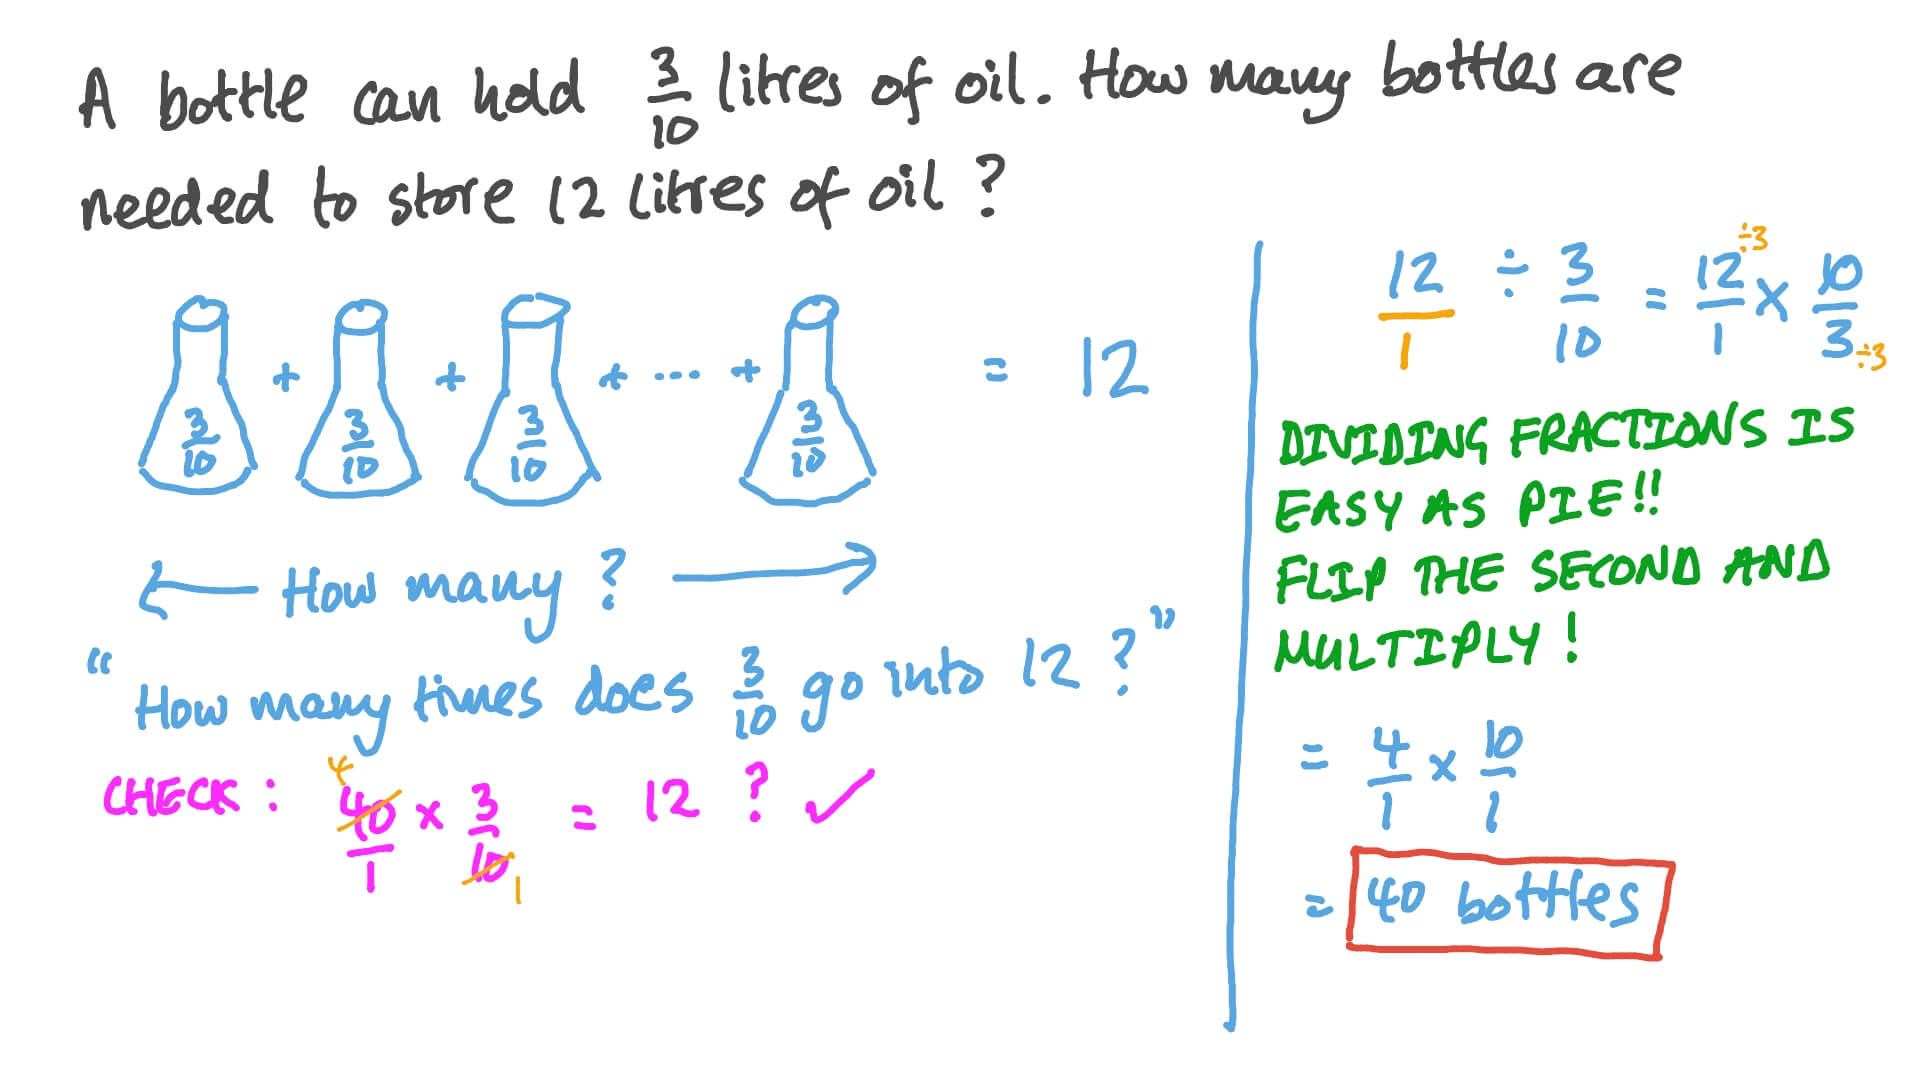 A bottle can hold 3/10 litres of oil. How many bottles are
needed to store 12 litres of oil?
3/10 + 3/10 + 3/10 + ... + 3/10 = 12
← How many? →
"How many times does 3/10 go into 12?"
CHECK: 4 40/1 × 3/10 1 = 12? ✓
12/1 ÷ 3/10 = 12/1 ÷3 × 10/3 ÷3
DIVIDING FRACTIONS IS
EASY AS PIE!!
FLIP THE SECOND AND
MULTIPLY!
= 4/1 × 10/1
= 40 bottles